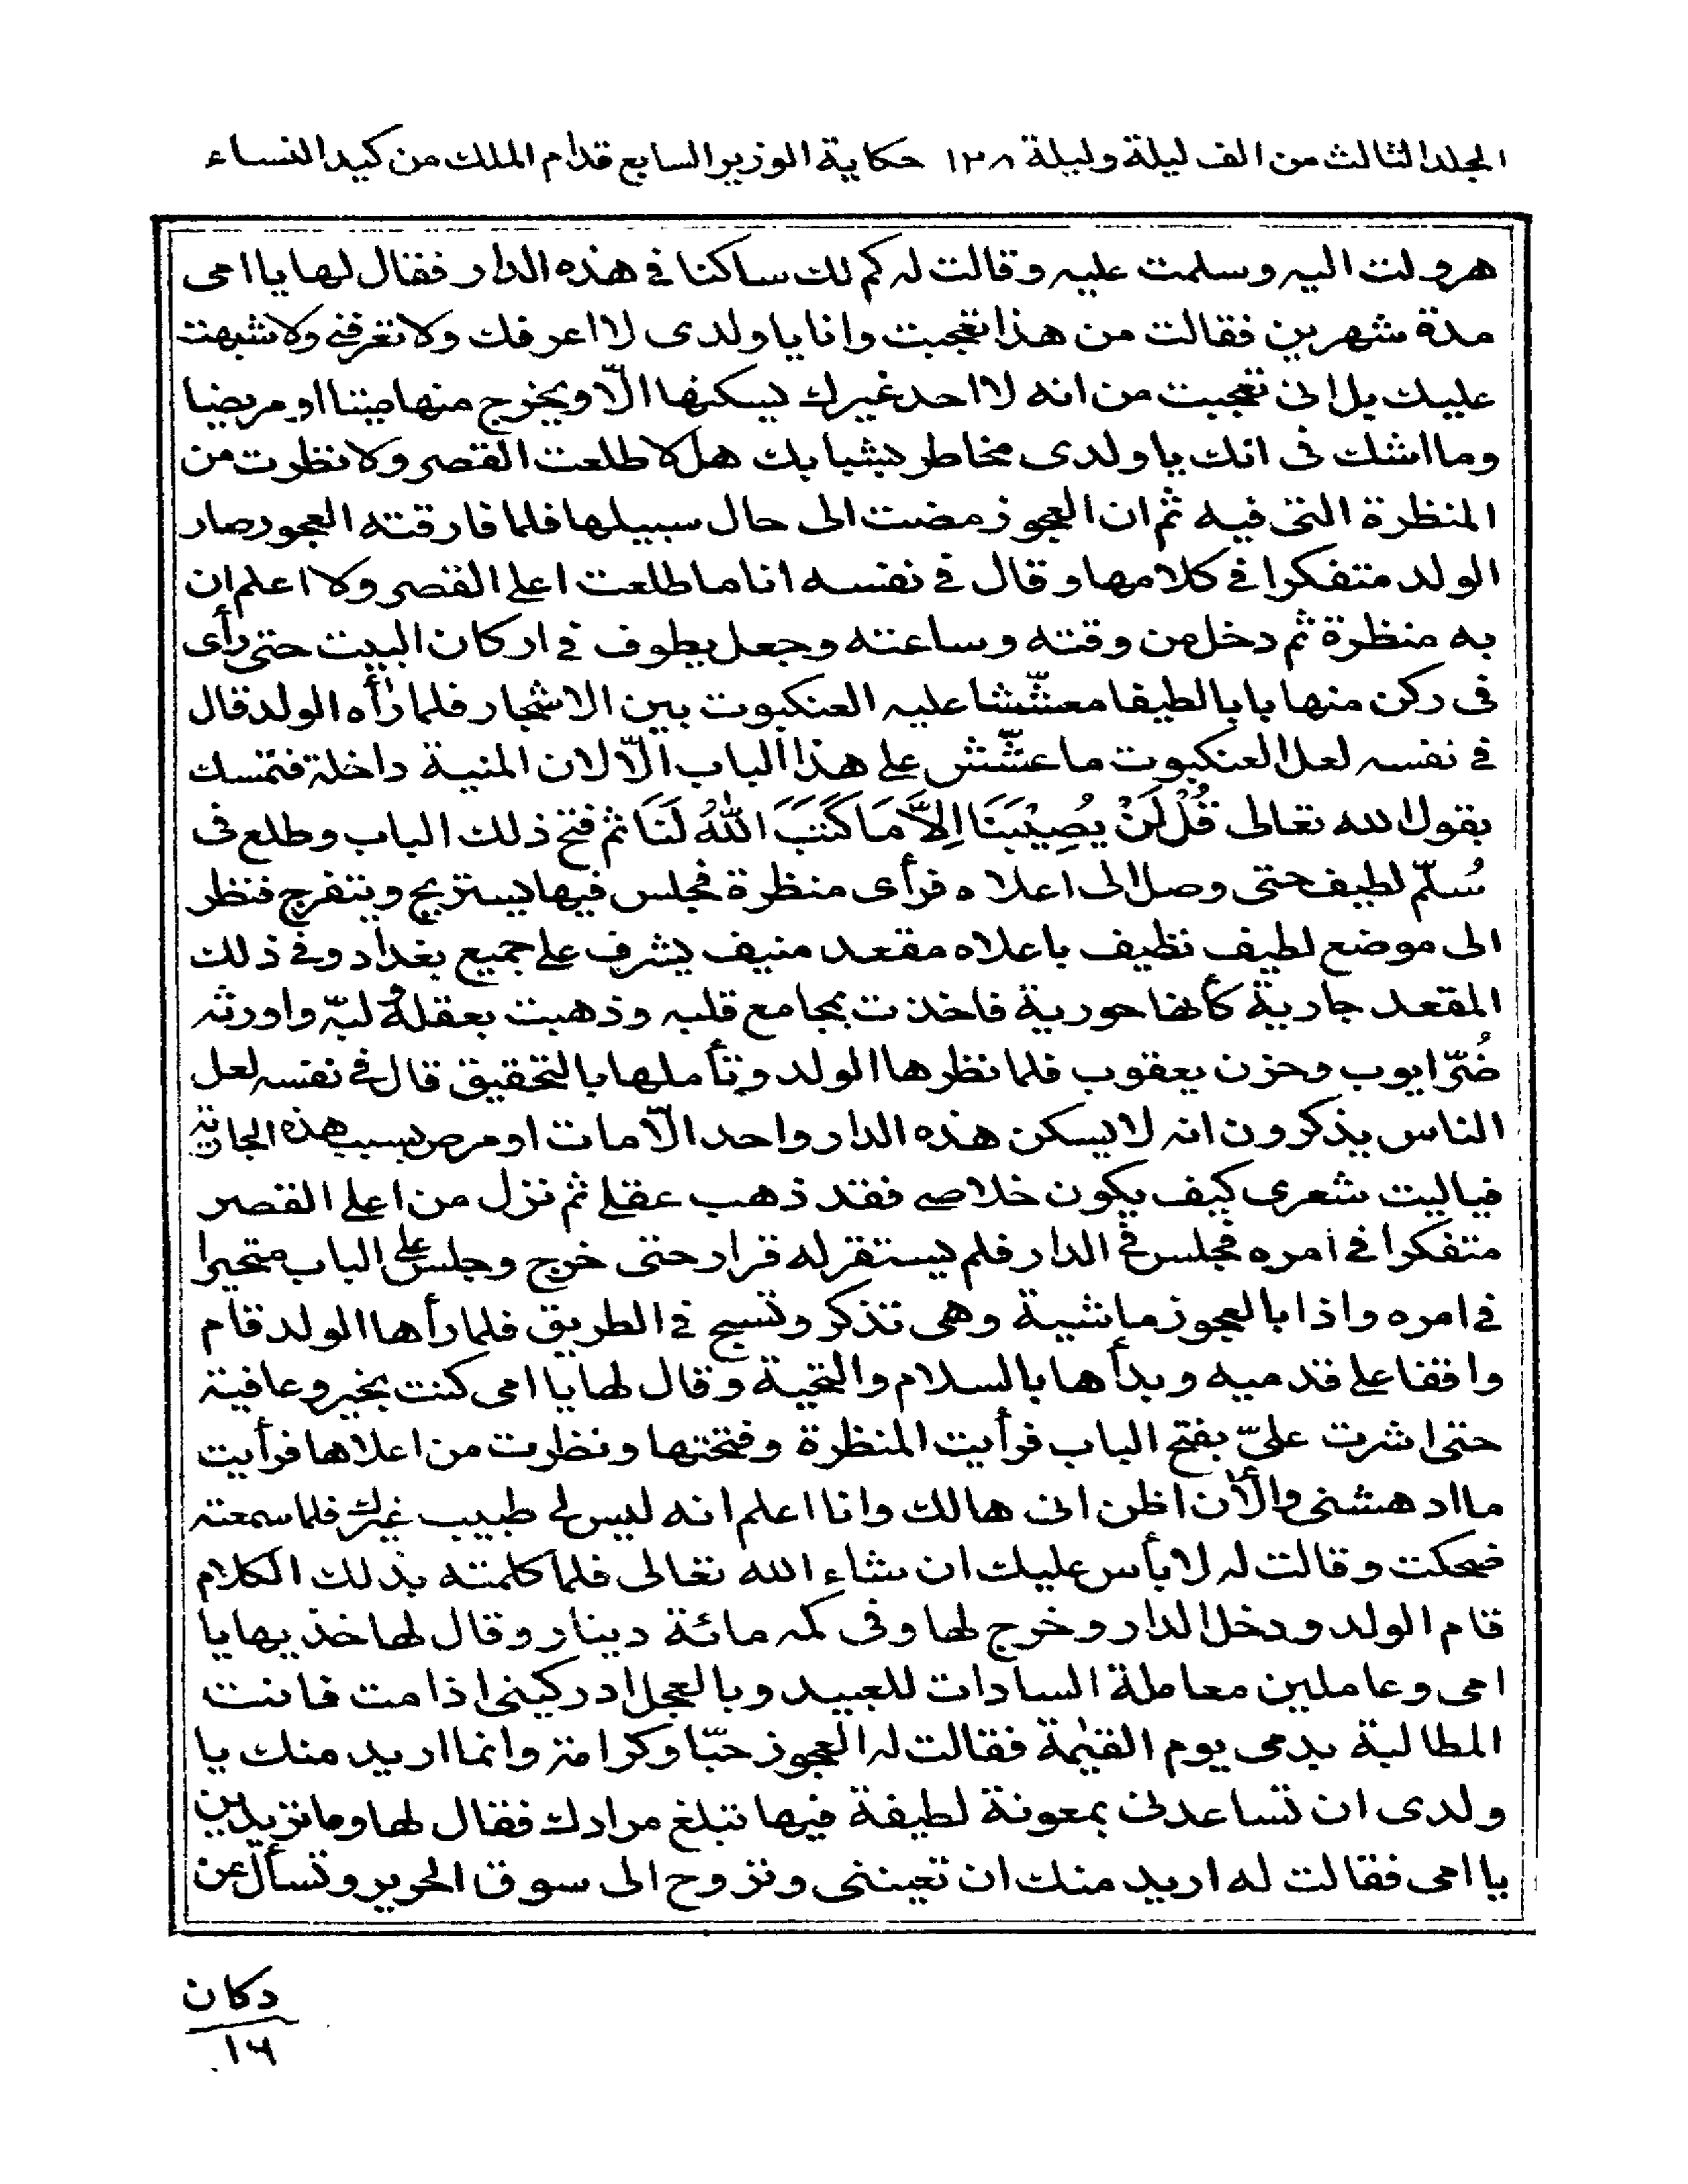 المجلد الثالث من الف ليلة وليلة ١٢٨ حكاية الوزير السابع قدام الملك من كيد النساء
هرولت اليه وسلمت عليه وقالت له كم لك ساكنا في هذه الدار فقال لها يا امى
مدة شهرين فقالت من هذا تعجبت وانا يا ولدى لا اعرفك ولا تعرفني ولا شبهت
عليك بل انى تعجبت من انه لا احد غيرك يسكنها الّا ويخرج منها ميتا او مريضا
وما اشك فى انك يا ولدى مخاطر بشبابك هل لا طلعت القصر ولا نظرت من
المنظرة التى فيه ثم ان العجوز مضت الى حال سبيلها فلما فارقته العجوز صار
الولد متفكرا في كلامها وقال في نفسه انا ما طلعت اعلى القصر ولا اعلم ان
به منظرة ثم دخل من وقته وساعته وجعل يطوف في اركان البيت حتى رأى
فى ركن منها بابا لطيفا معشّشا عليه العنكبوت بين الاشجار فلما رأه الولد قال
في نفسه لعل العنكبوت ما عشّش على هذا الباب الّا لان المنية داخلة فتمسك
بقول الله تعالى قُلْ لَنْ يُصِيْبَنَا اِلَّا مَا كَتَبَ اللهُ لَنَا ثم فتح ذلك الباب وطلع فى
سُلّم لطيف حتى وصل الى اعلاه فرأى منظرة فجلس فيها يستريح ويتفرج فنظر
الى موضع لطيف نظيف باعلاه مقعد منيف يشرف على جميع بغداد وفى ذلك
المقعد جارية كأنها حورية فاخذت بمجامع قلبه وذهبت بعقله ولبّه واورثه
ضُرّ ايوب وحزن يعقوب فلما نظرها الولد وتأملها بالتحقيق قال في نفسه لعل
الناس يذكرون انه لا يسكن هذه الدار واحد الّا مات او مرض بسبب هذه الجارية
فياليت شعرى كيف يكون خلاصى فقد ذهب عقلى ثم نزل من اعلى القصر
متفكرا في امره فجلس في الدار فلم يستقر له قرار حتى خرج وجلس على الباب متحيرا
في امره واذا بالعجوز ماشية وهى تذكر وتسبح في الطريق فلما رأها الولد قام
واقفا على قدميه وبدأها بالسلام والتحية وقال لها يا امى كنت بخير وعافية
حتى اشرت علىّ بفتح الباب فرأيت المنظرة وفتحتها ونظرت من اعلاها فرأيت
ما ادهشنى والأن اظن انى هالك وانا اعلم انه ليس لى طبيب غيرك فلما سمعته
ضحكت وقالت له لا بأس عليك ان شاء الله تعالى فلما كلمته بذلك الكلام
قام الولد ودخل الدار وخرج لها وفى كمه مائة دينار وقال لها خذيها يا
امى وعاملين معاملة السادات للعبيد وبالعجل ادركينى اذا مت فانت
المطالبة بدمى يوم القيٰمة فقالت له العجوز حبّا وكرامة وانما اريد منك يا
ولدى ان تساعدنى بمعونة لطيفة فيها تبلغ مرادك فقال لها وما تريدين
يا امى فقالت له اريد منك ان تعيننى وتروح الى سوق الحرير وتسأل عن
دكان
١٦